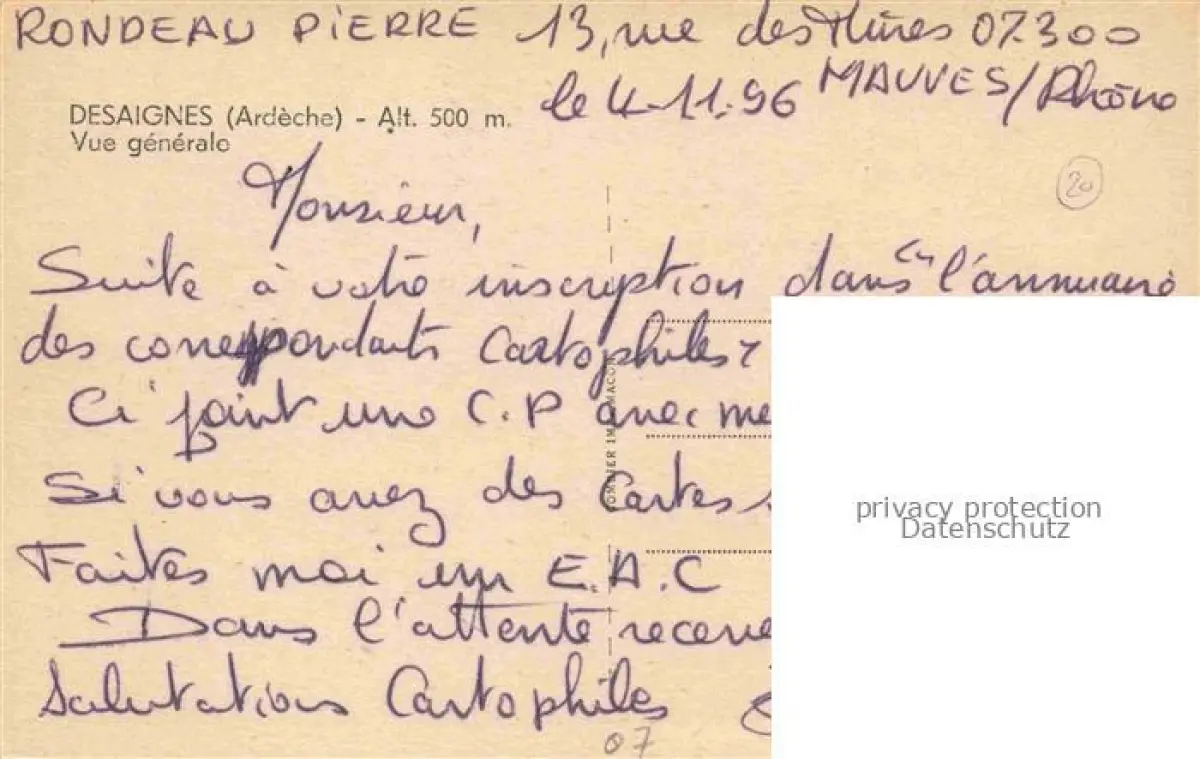 RONDEAU PIERRE 13, rue des Mûres 07.300
le 4-11-96 MAUVES/Rhône
DESAIGNES (Ardèche) - Alt. 500 m.
Vue générale
20
Monsieur,
Suite à votre inscription dans l'annuaire
des correspondants Cartophiles
Ci joint une C.P avec me
Si vous avez des Cartes
Faites moi un E.A.C
Dans l'attente receve
Salutations Cartophiles
07
COMBIER IMP. MACON
privacy protection
Datenschutz